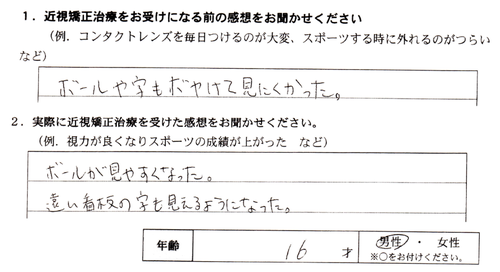 1．近視矯正治療をお受けになる前の感想をお聞かせください
（例．コンタクトレンズを毎日つけるのが大変、スポーツする時に外れるのがつらい
など）
ボールや字もボヤけて見にくかった。
2．実際に近視矯正治療を受けた感想をお聞かせください。
（例．視力が良くなりスポーツの成績が上がった　など）
ボールが見やすくなった。
遠い看板の字も見えるようになった。
年齢 16 才 男性・女性
※○をお付けください。